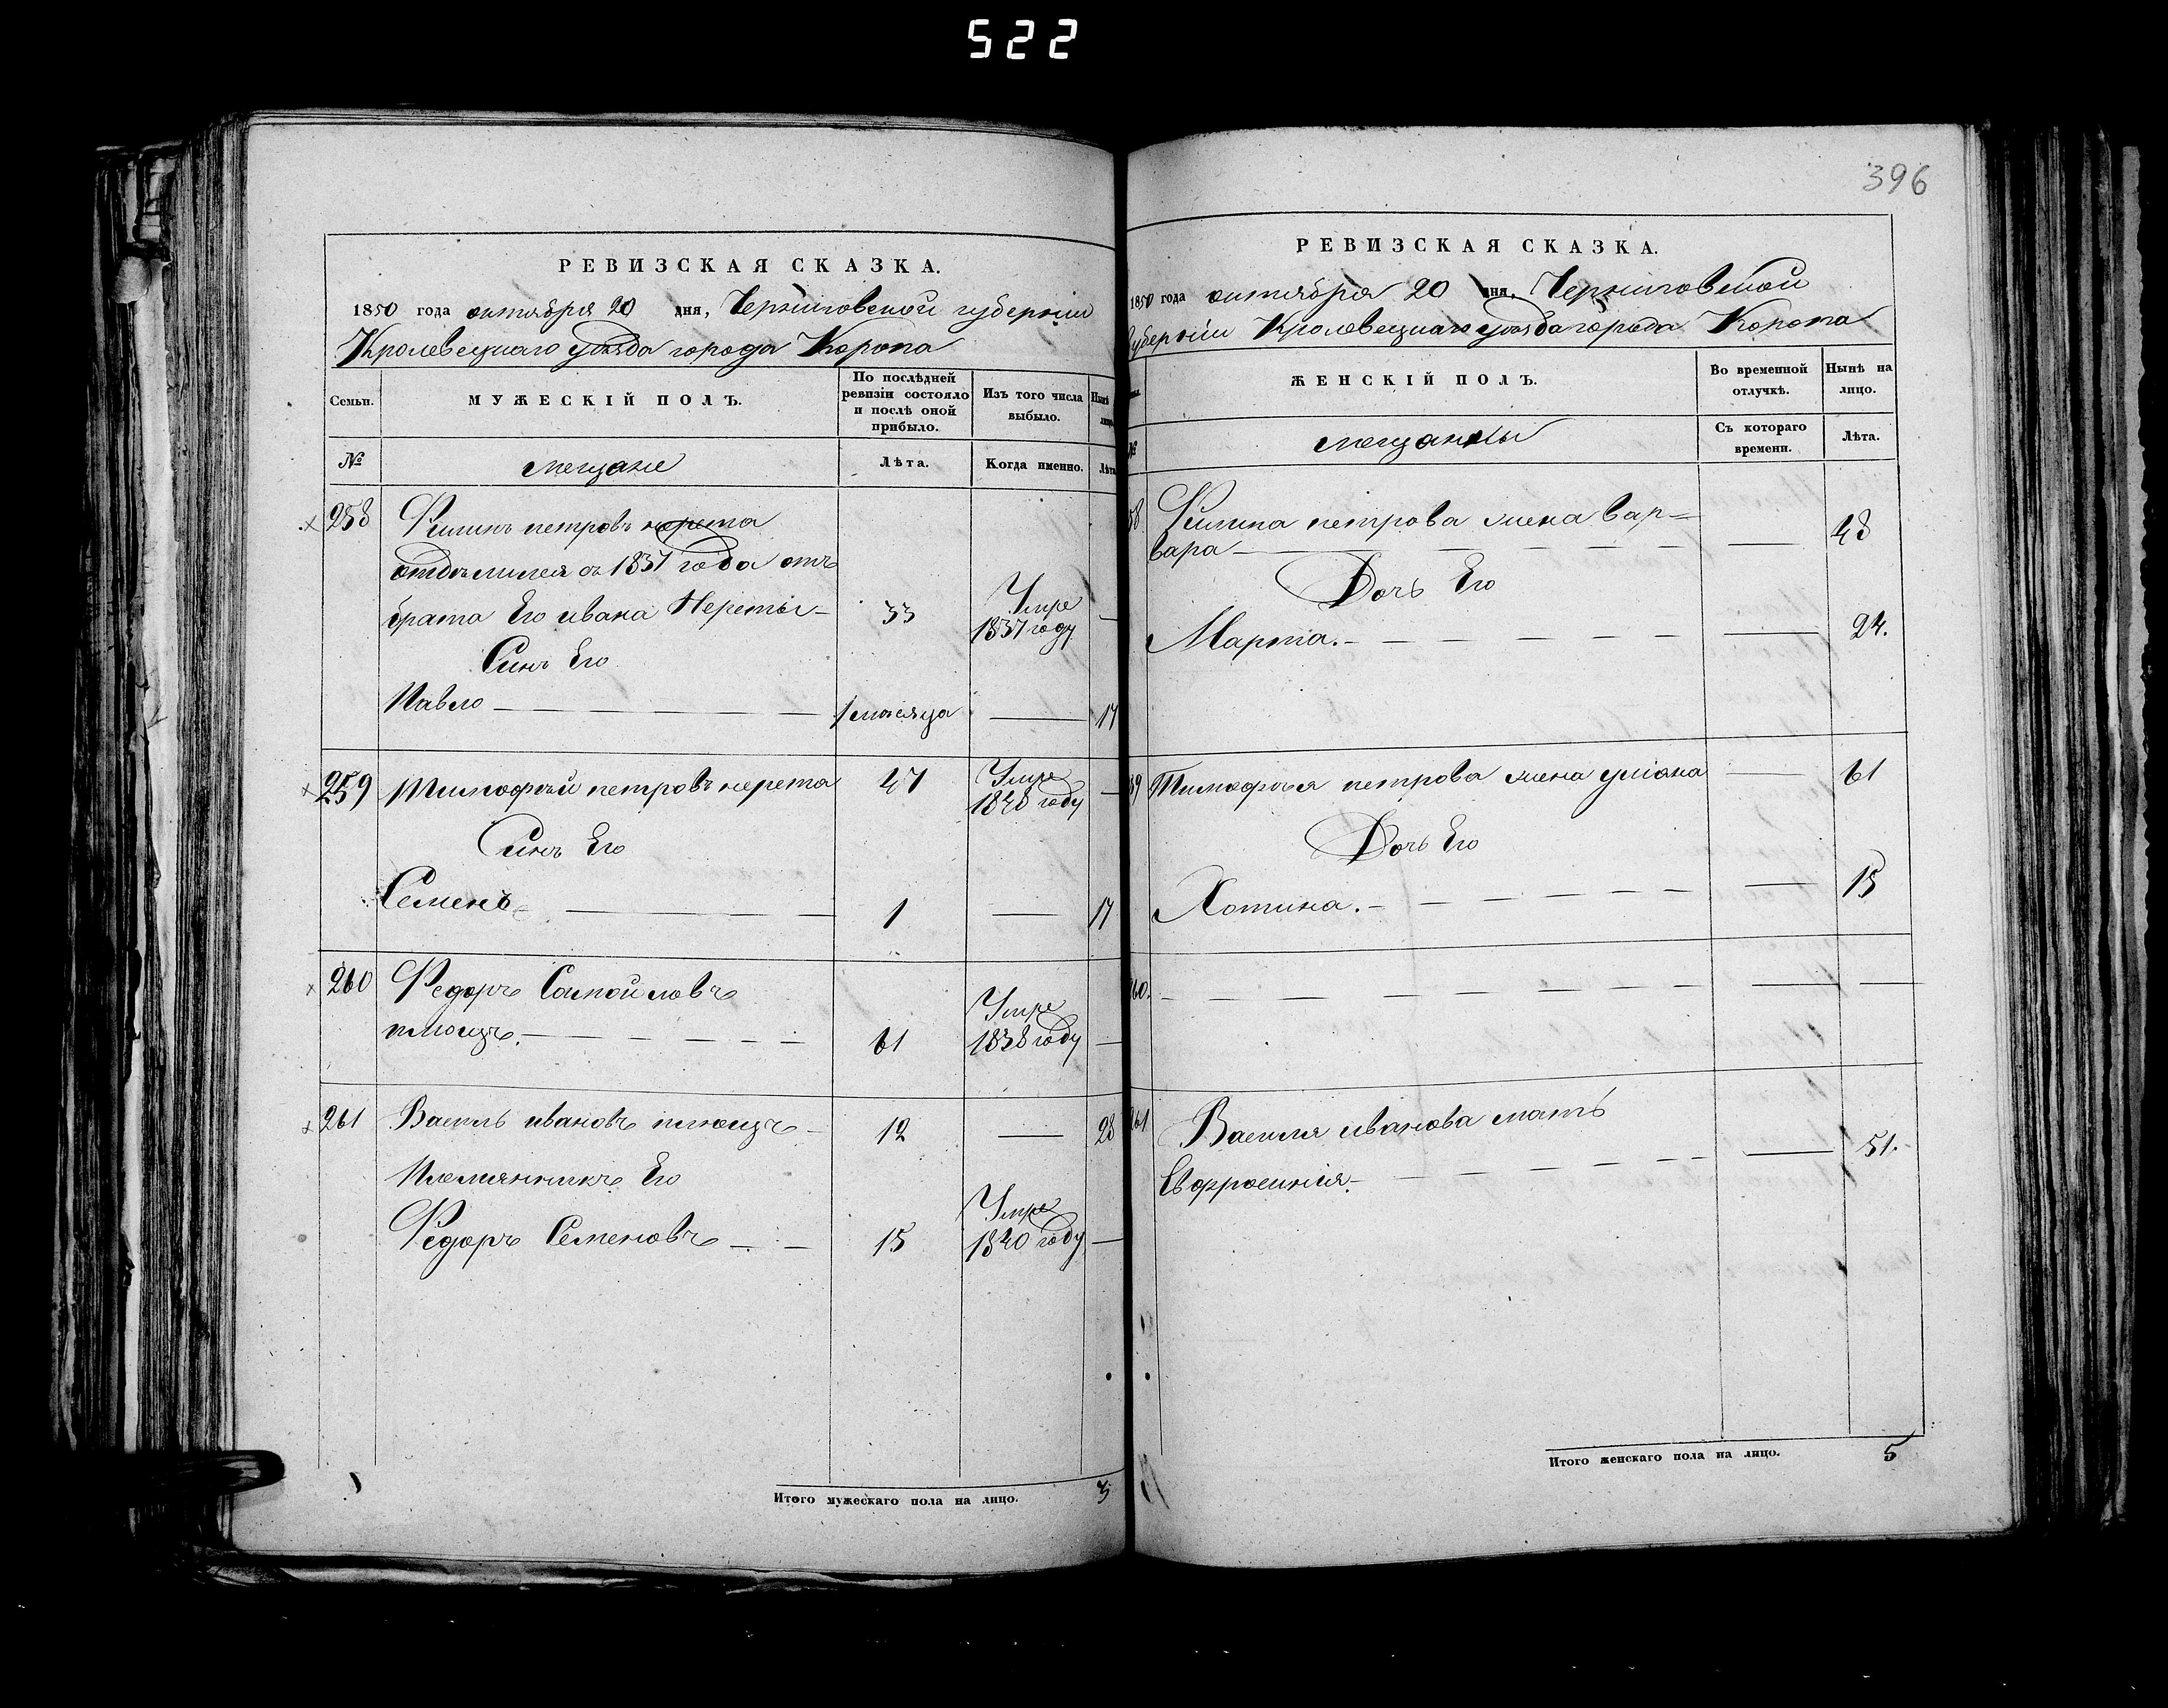 522
РЕВИЗСКАЯ СКАЗКА.
1850 года октября 20 дня, Черниговской губернии
Кролевецкаго уѣзда города Коропа
Семьи.
МУЖЕСКІЙ ПОЛЪ.
По послѣдней
ревизіи состояло
и послѣ оной
прибыло.
Изъ того числа
выбыло.
Нынѣ
№
мещане
Лѣта.
Когда именно.
Лѣта
258
Филипъ петровъ нерета
отдѣлился съ 1837 года отъ
брата Его ивана Нереты
33
Умре
1837 году
Синъ Его
Павло
1 месяца
17
259
Тимофѣй петровъ нерета
47
Умре
1848 году
Синъ Его
Семенъ
1
17
260
Федоръ Самойловъ
плющъ
61
Умре
1838 году
261
Василь ивановъ плющъ
12
28
Племянникъ Его
Федоръ Семеновъ
15
Умре
1840 году
Итого мужескаго пола на лицо.
3
396
РЕВИЗСКАЯ СКАЗКА.
1850 года октября 20 дня, Черниговской
губерніи Кролевецкаго уѣзда города Коропа
ЖЕНСКІЙ ПОЛЪ.
Во временной
отлучкѣ.
Нынѣ на
лицо.
№
мещанки
Съ котораго
времени.
Лѣта.
58
Филипа петрова жена Вар=
вара
48
Дочь Его
Марта.
24.
59
Тимофѣя петрова жена уліана
61
Дочь Его
Хотина.
15
60.
261
Василя иванова мать
Евфросинія
51.
Итого женскаго пола на лицо.
5